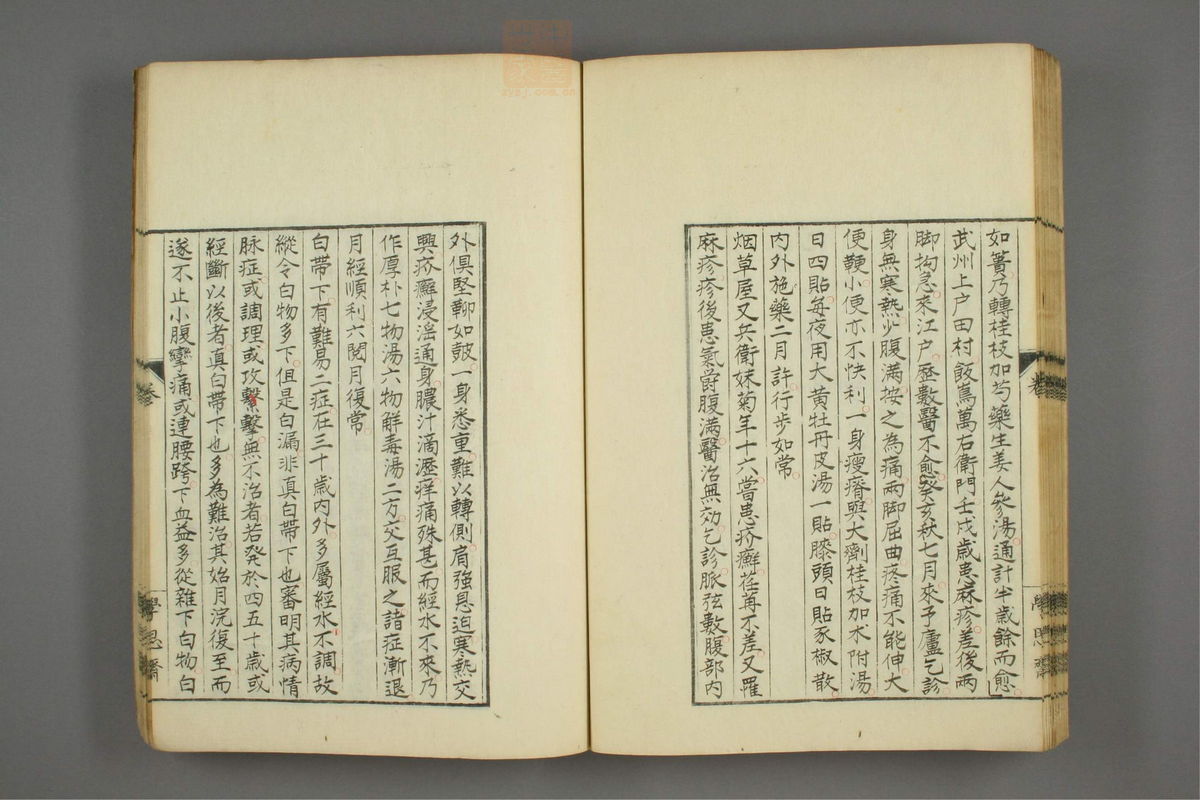 如簀乃轉桂枝加芍藥生姜人參湯通計半歲餘而愈
武州上户田村飯嶌萬右衛門壬戌歲患麻疹差後兩
脚拘急來江户歷數醫不愈癸亥秋七月來予廬乞診
身無寒熱少腹滿按之為痛兩脚屈曲疼痛不能伸大
便鞕小便亦不快利一身瘦瘠與大劑桂枝加朮附湯
日四貼每夜用大黃牡丹皮湯一貼膝頭日貼豕椒散
內外施藥二月許行步如常
烟草屋又兵衛妹菊年十六嘗患疥癬荏苒不差又罹
麻疹疹後患氣欝腹滿醫治無効乞診脈弦數腹部內
外俱堅鞕如鼓一身悉重難以轉側肩強息迫寒熱交
興疥癬浸淫通身膿汁滴瀝痒痛殊甚而經水不來乃
作厚朴七物湯六物解毒湯二方交互服之諸症漸退
月經順利六閱月復常
白帶下有難易二症在三十歲內外多屬經水不調故
縱令白物多下但是白漏非真白帶下也審明其病情
脉症或調理或攻繫擊無不治者若発於四五十歲或
經斷以後者真白帶下也多為難治其始月浣復至而
遂不止小腹攣痛或連腰跨下血益多從雜下白物白
卷
學思齋
學思齋
zysj.com.cn